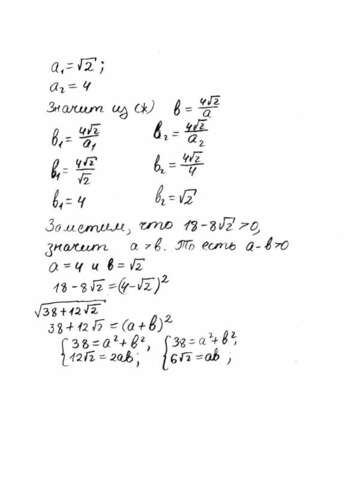 a₁=√2;
a₂=4
Значит из (*) b=4√2/a
b₁=4√2/a₁ b₂=4√2/a₂
b₁=4√2/√2 b₂=4√2/4
b₁=4 b₂=√2
Заметим, что 18-8√2>0,
значит a>b. То есть a-b>0
a=4 и b=√2
18-8√2=(4-√2)²
√(38+12√2)
38+12√2=(a+b)²
{38=a²+b², {38=a²+b²,
{12√2=2ab; {6√2=ab;